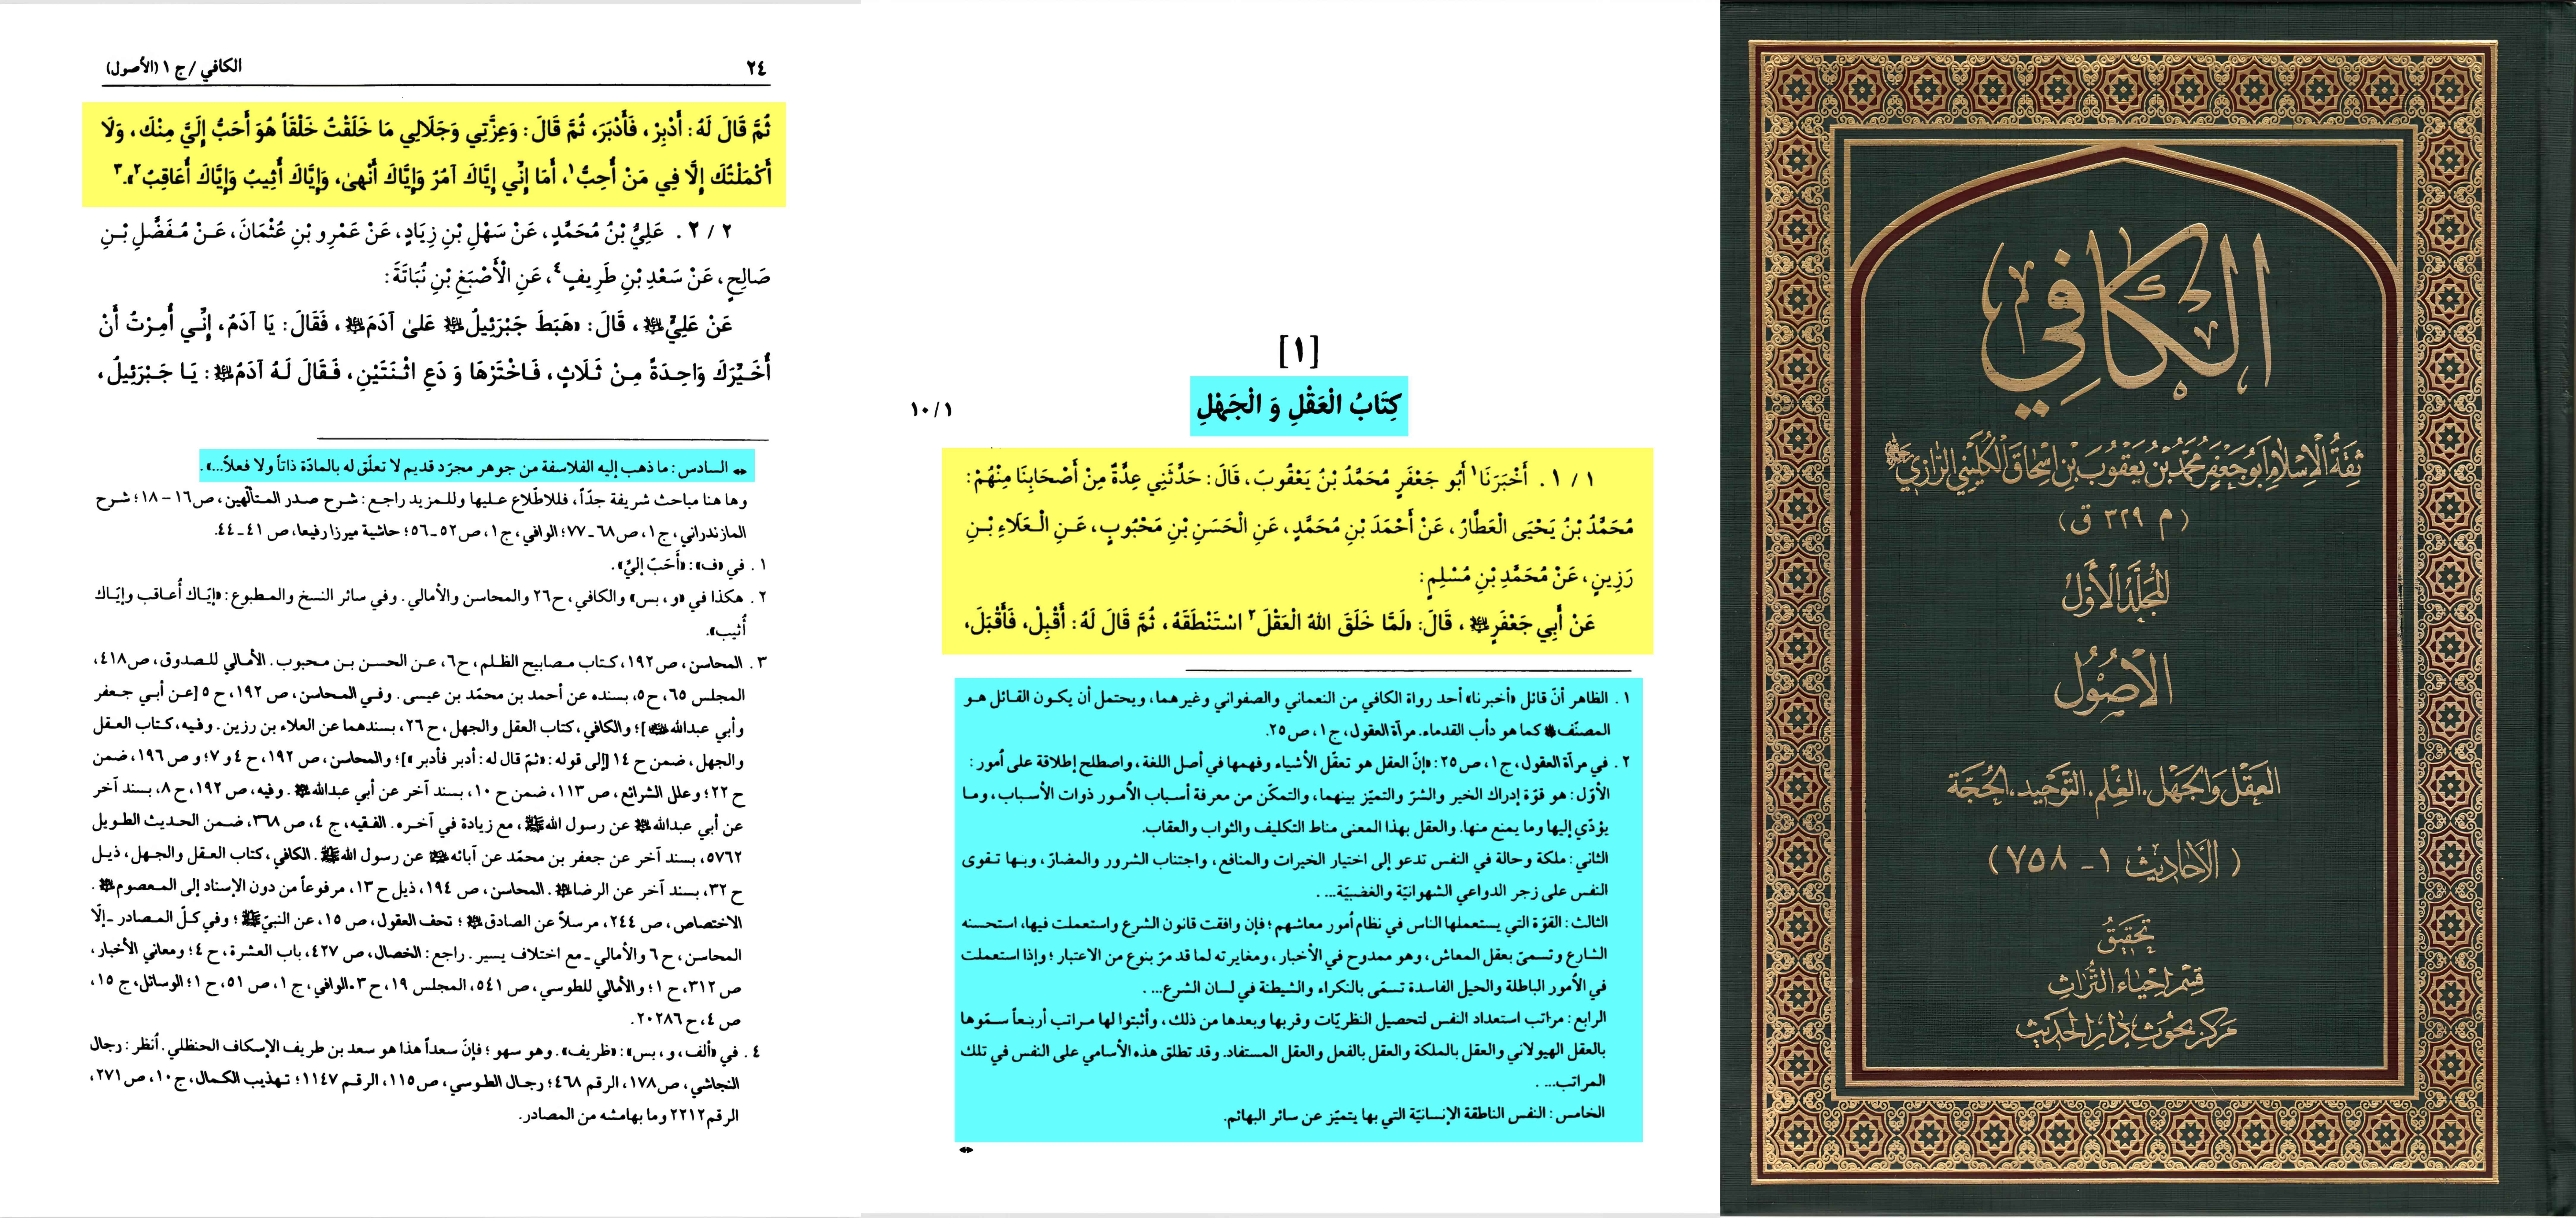 الكافي
ثقة الإسلام أبو جعفر محمد بن يعقوب بن إسحاق الكليني الرازي
(م ٣٢٩ ق)
المجلد الأول
الأصول
العقل والجهل. العلم. التوحيد. الحجة
(الأحاديث ١ - ٧٥٨)
تحقيق
قسم إحياء التراث
مركز بحوث دار الحديث
[١]
كِتَابُ الْعَقْلِ وَ الْجَهْلِ
١٠/١
١ / ١ . أَخْبَرَنَا١ أَبُو جَعْفَرٍ مُحَمَّدُ بْنُ يَعْقُوبَ، قَالَ: حَدَّثَنِي عِدَّةٌ مِنْ أَصْحَابِنَا مِنْهُمْ:
مُحَمَّدُ بْنُ يَحْيَى الْعَطَّارُ، عَنْ أَحْمَدَ بْنِ مُحَمَّدٍ، عَنِ الْحَسَنِ بْنِ مَحْبُوبٍ، عَنِ الْعَلَاءِ بْنِ
رَزِينٍ، عَنْ مُحَمَّدِ بْنِ مُسْلِمٍ:
عَنْ أَبِي جَعْفَرٍ ﷷ، قَالَ: «لَمَّا خَلَقَ اللهُ الْعَقْلَ٢ اسْتَنْطَقَهُ، ثُمَّ قَالَ لَهُ: أَقْبِلْ، فَأَقْبَلَ،
١ . الظاهر أنّ قائل «أخبرنا» أحد رواة الكافي من النعماني والصفواني وغيرهما، ويحتمل أن يكون القائل هو
المصنّف كما هو دأب القدماء. مرآة العقول، ج ١، ص ٢٥.
٢ . في مرآة العقول، ج ١، ص ٢٥: «إنّ العقل هو تعقّل الأشياء وفهمها في أصل اللغة، واصطلح إطلاقة على أُمور:
الأوّل: هو قوّة إدراك الخير والشرّ والتميّز بينهما، والتمكّن من معرفة أسباب الأمور ذوات الأسباب، وما
يؤدّي إليها وما يمنع منها. والعقل بهذا المعنى مناط التكليف والثواب والعقاب.
الثاني: ملكة وحالة في النفس تدعو إلى اختيار الخيرات والمنافع، واجتناب الشرور والمضارّ، وبها تقوى
النفس على زجر الدواعي الشهوانيّة والغضبيّة... .
الثالث: القوّة التي يستعملها الناس في نظام أُمور معاشهم؛ فإن وافقت قانون الشرع واستعملت فيها، استحسنه
الشارع وتسمىّ بعقل المعاش، وهو ممدوح في الأخبار، ومغايرته لما قد مرّ بنوع من الاعتبار؛ وإذا استعملت
في الأمور الباطلة والحيل الفاسدة تسمّى بالنكراء والشيطنة في لسان الشرع... .
الرابع: مراتب استعداد النفس لتحصيل النظريّات وقربها وبعدها من ذلك، وأثبتوا لها مراتب أربعاً سمّوها
بالعقل الهيولاني والعقل بالملكة والعقل بالفعل والعقل المستفاد. وقد تطلق هذه الأسامي على النفس في تلك
المراتب... .
الخامس: النفس الناطقة الإنسانيّة التي بها يتميّز عن سائر البهائم.
٢٤
الكافي / ج ١ (الأصول)
ثُمَّ قَالَ لَهُ: أَدْبِرْ، فَأَدْبَرَ، ثُمَّ قَالَ: وَعِزَّتِي وَجَلَالِي مَا خَلَقْتُ خَلْقاً هُوَ أَحَبُّ إِلَيَّ مِنْكَ، وَلَا
أَكْمَلْتُكَ إِلَّا فِي مَنْ أُحِبُّ١، أَمَا إِنِّي إِيَّاكَ آمُرُ وَإِيَّاكَ أَنْهىٰ، وَإِيَّاكَ أُثِيبُ وَإِيَّاكَ أُعَاقِبُ٢».٣
٢ / ٢ . عَلِيُّ بْنُ مُحَمَّدٍ، عَنْ سَهْلِ بْنِ زِيَادٍ، عَنْ عَمْرِو بْنِ عُثْمَانَ، عَنْ مُفَضَّلِ بْنِ
صَالِحٍ، عَنْ سَعْدِ بْنِ طَرِيفٍ٤، عَنِ الْأَصْبَغِ بْنِ نُبَاتَةَ:
عَنْ عَلِيٍّ ﷷ، قَالَ: «هَبَطَ جَبْرَئِيلُ ﷷ عَلىٰ آدَمَ ﷷ، فَقَالَ: يَا آدَمُ، إِنِّي أُمِرْتُ أَنْ
أُخَيِّرَكَ وَاحِدَةً مِنْ ثَلَاثٍ، فَاخْتَرْهَا وَ دَعِ اثْنَتَيْنِ، فَقَالَ لَهُ آدَمُ ﷷ: يَا جَبْرَئِيلُ،
السادس: ما ذهب إليه الفلاسفة من جوهر مجرّد قديم لا تعلّق له بالمادّة ذاتاً ولا فعلاً...».
وها هنا مباحث شريفة جدّاً، فللاطّلاع عليها وللمزيد راجع: شرح صدر المتألّهين، ص ١٦ – ١٨؛ شرح
المازندراني، ج ١، ص ٦٨ ـ ٧٧؛ الوافي، ج ١، ص ٥٢ ـ ٥٦؛ حاشية ميرزا رفيعا، ص ٤١ ـ ٤٤.
١ . في «ف»: «أَحَبّ إليَّ».
٢ . هكذا في «و، بس» والكافي، ح ٢٦ والمحاسن والأمالي. وفي سائر النسخ والمطبوع: «إيّاك أُعاقب وإيّاك
أُثيب».
٣ . المحاسن، ص ١٩٢، كتاب مصابيح الظلم، ح ٦، عن الحسن بن محبوب. الأمالي للصدوق، ص ٤١٨،
المجلس ٦٥، ح ٥، بسنده عن أحمد بن محمّد بن عيسى. وفي المحاسن، ص ١٩٢، ح ٥ [عن أبي جعفر
وأبي عبدالله ﷷ]؛ والكافي، كتاب العقل والجهل، ح ٢٦، بسندهما عن العلاء بن رزين. وفيه، كتاب العقل
والجهل، ضمن ح ١٤ [إلى قوله: «ثمّ قال له: أدبر فأدبر»]؛ والمحاسن، ص ١٩٢، ح ٤ و ٧؛ و ص ١٩٦، ضمن
ح ٢٢؛ وعلل الشرائع، ص ١١٣، ضمن ح ١٠، بسند آخر عن أبي عبدالله ﷷ. وفيه، ص ١٩٢، ح ٨، بسند آخر
عن أبي عبدالله ﷷ عن رسول الله ﷺ، مع زيادة في آخره. الفقيه، ج ٤، ص ٣٦٨، ضمن الحديث الطويل
٥٧٦٢، بسند آخر عن جعفر بن محمّد عن آبائه ﷷ عن رسول الله ﷺ. الكافي، كتاب العقل والجهل، ذيل
ح ٣٢، بسند آخر عن الرضا ﷷ. المحاسن، ص ١٩٤، ذيل ح ١٣، مرفوعاً من دون الإسناد إلى المعصوم ﷷ.
الاختصاص، ص ٢٤٤، مرسلاً عن الصادق ﷷ؛ تحف العقول، ص ١٥، عن النبيّ ﷺ؛ وفي كلّ المصادر ـ إلّا
المحاسن، ح ٦ والأمالي ـ مع اختلاف يسير. راجع: الخصال، ص ٤٢٧، باب العشرة، ح ٤؛ ومعاني الأخبار،
ص ٣١٢، ح ١؛ والأمالي للطوسي، ص ٥٤١، المجلس ١٩، ح ٣. الوافي، ج ١، ص ٥١، ح ١؛ الوسائل، ج ١٥،
ص ٤، ح ٢٠٢٨٦.
٤ . في «ألف، و، بس»: «ظريف». وهو سهو؛ فإنّ سعداً هذا هو سعد بن طريف الإسكاف الحنظلي. أنظر: رجال
النجاشي، ص ١٧٨، الرقم ٤٦٨؛ رجال الطوسي، ص ١١٥، الرقم ١١٤٧؛ تهذيب الكمال، ج ١٠، ص ٢٧١،
الرقم ٢٢١٢ وما بهامشه من المصادر.